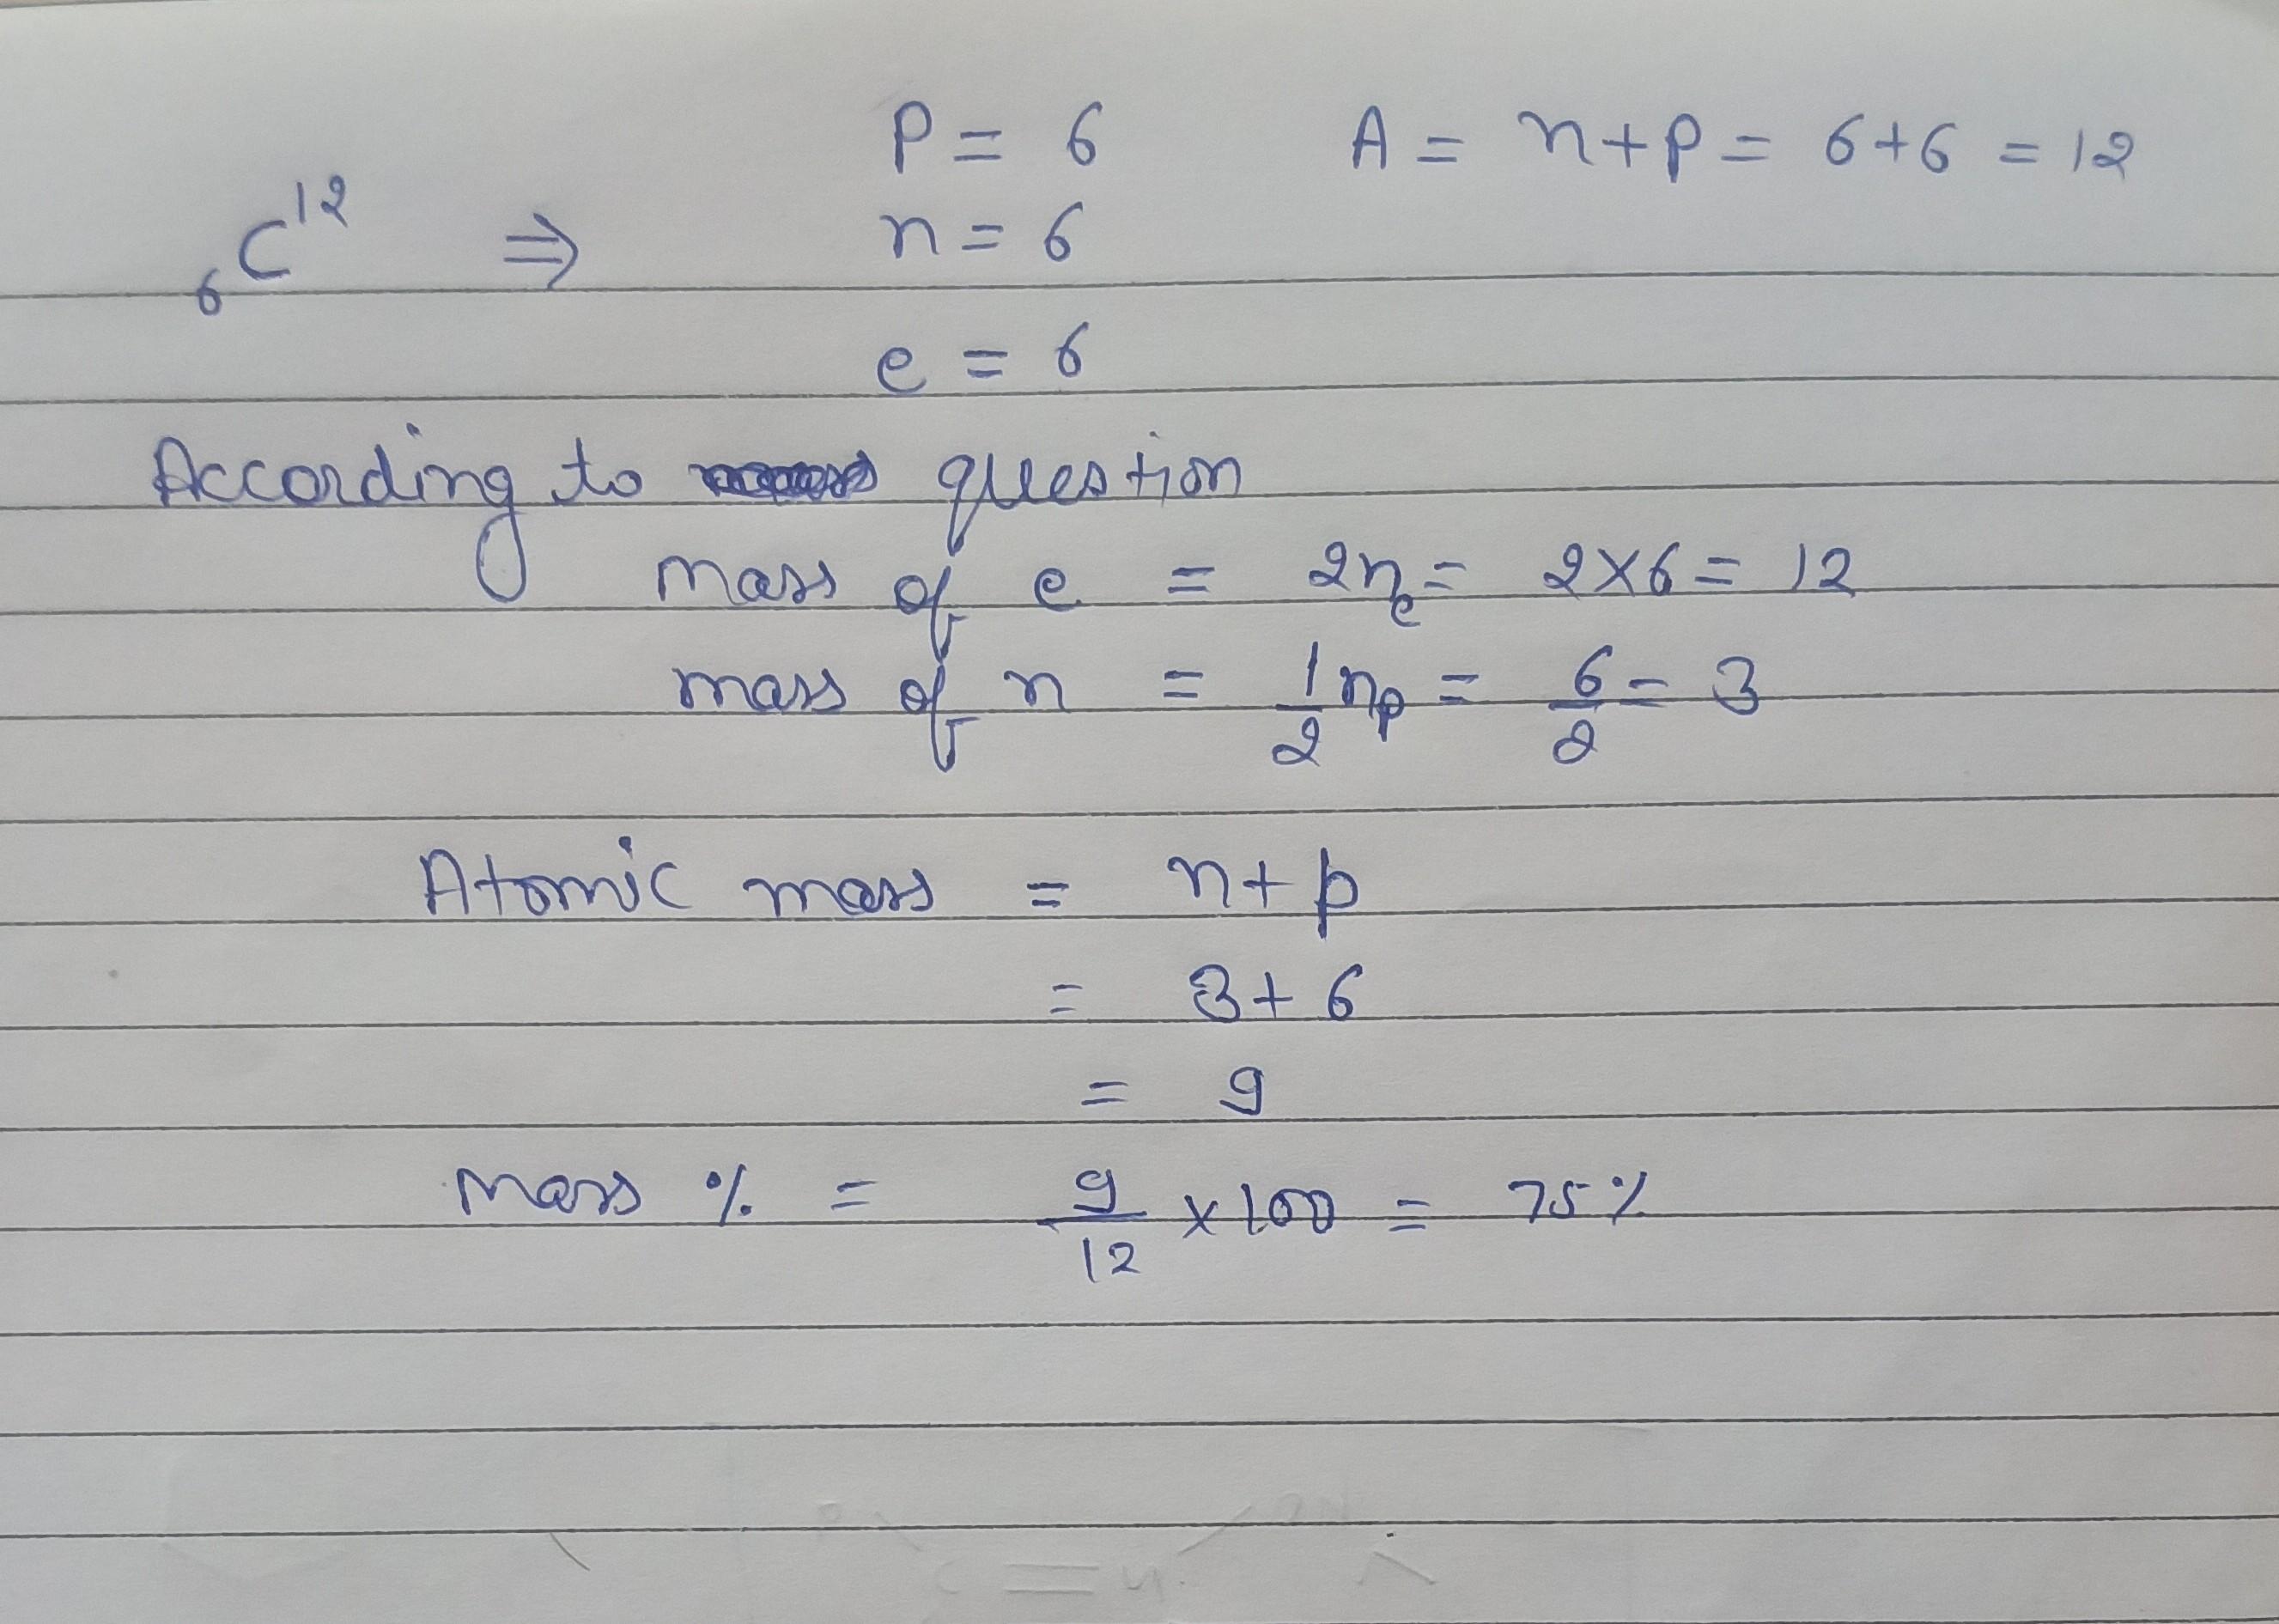 P = 6 A = n+P = 6+6 = 12
₆C¹² ⇒ n = 6
e = 6
According to question
mass of e = 2nₑ = 2×6 = 12
mass of n = 1/2 nₚ = 6/2 = 3
Atomic mass = n+p
= 3+6
= 9
mass % = 9/12 × 100 = 75%